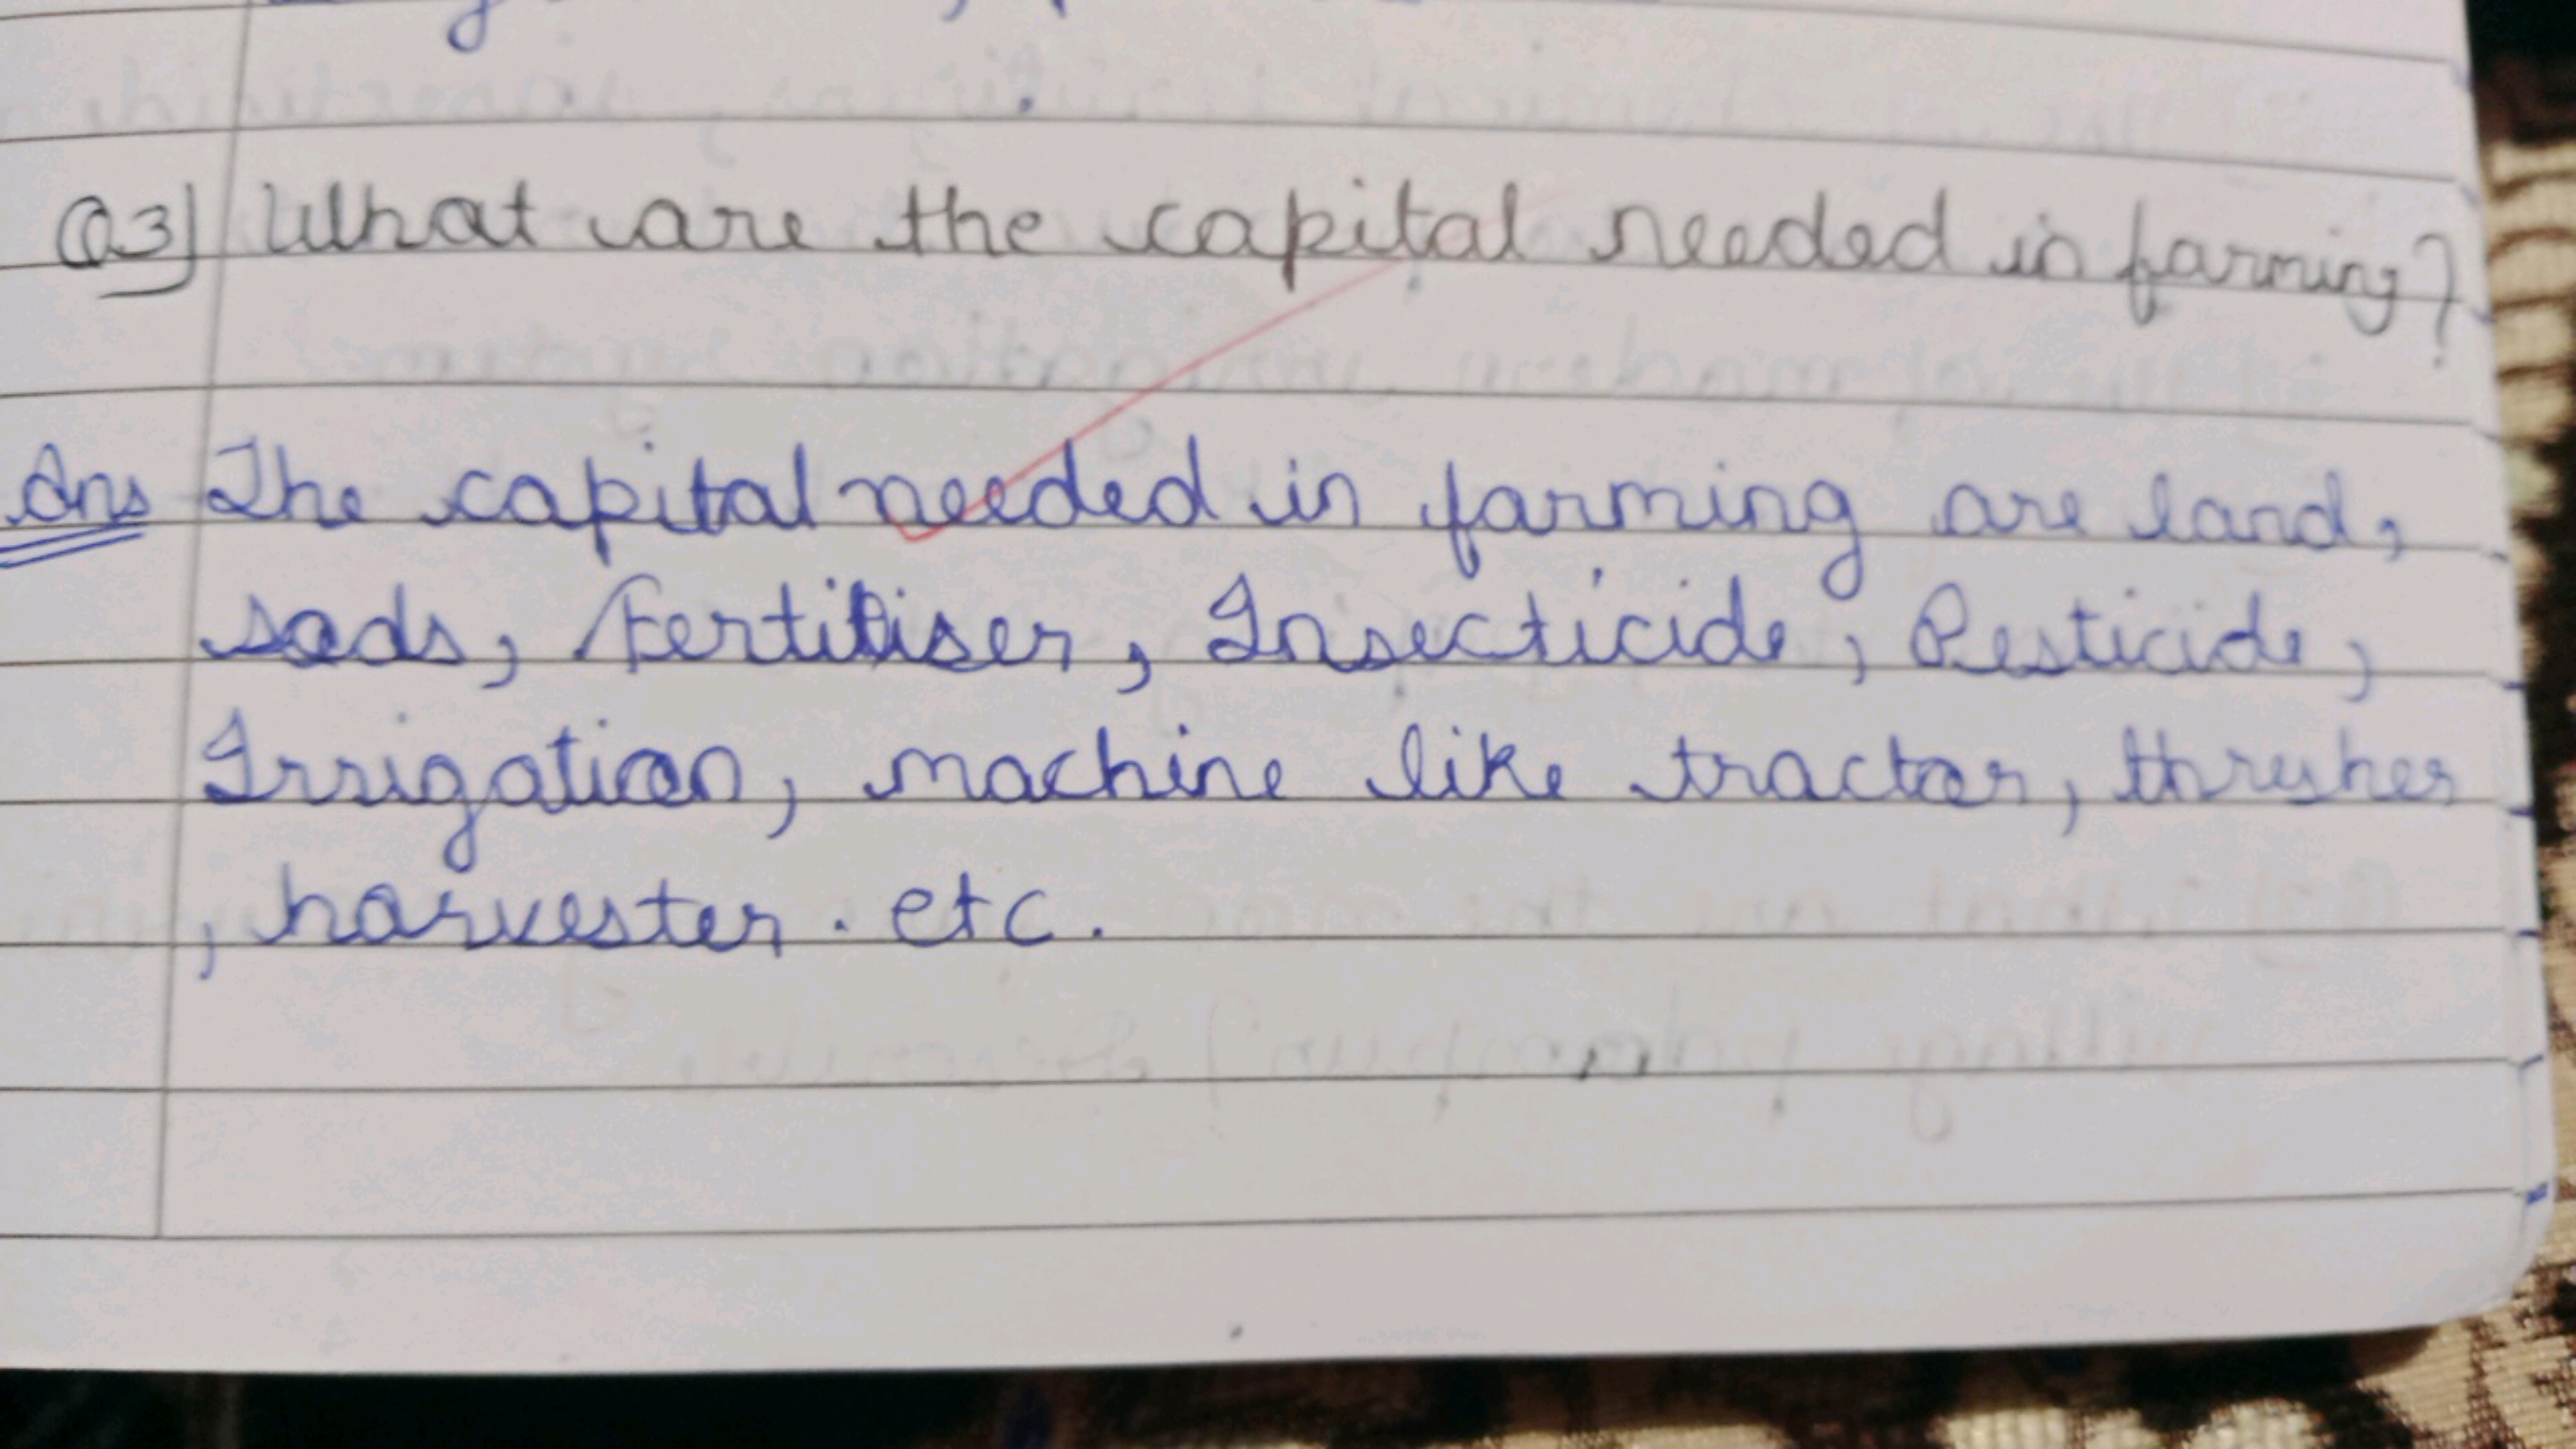 Q3) What are the capital needed in farming?
Ans The capital needed in farming are land,
sads, Fertiliser, Insecticide, Pesticide,
Irrigation, machine like tractor, thrusher
, harvester. etc.